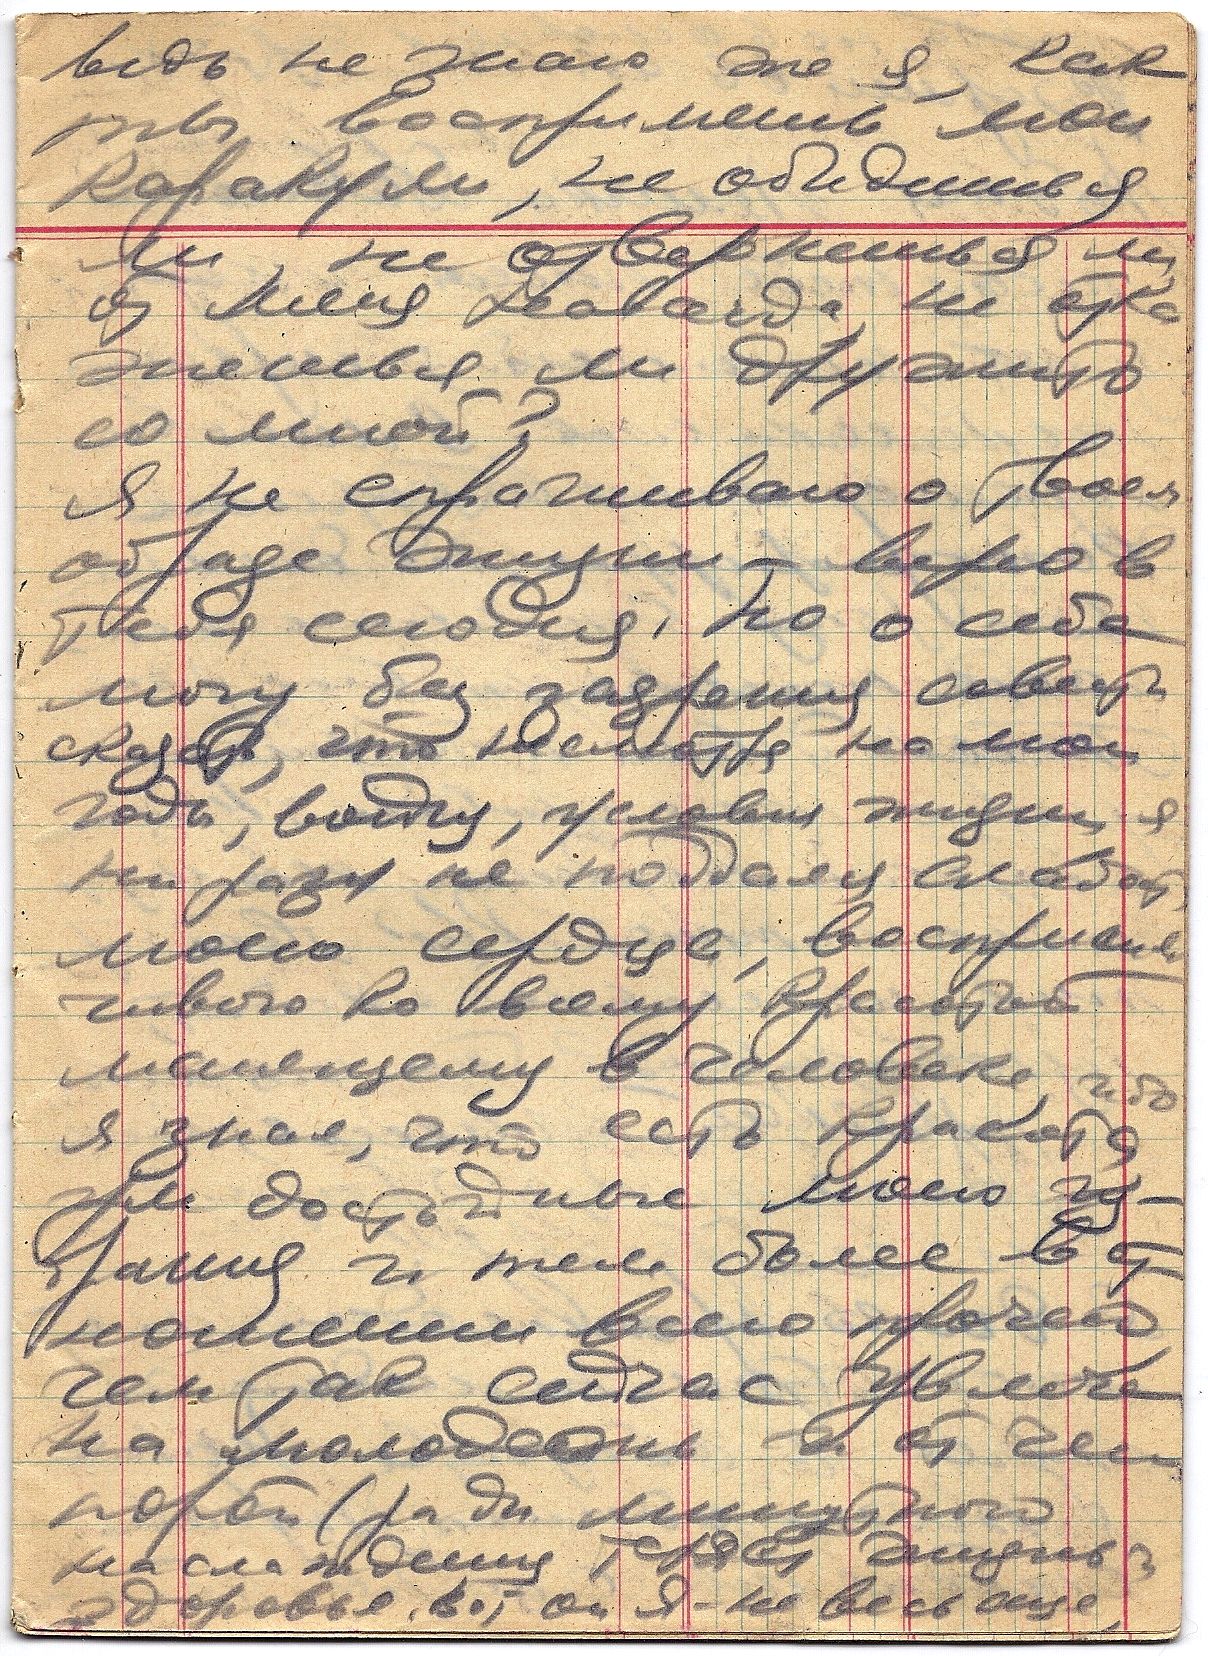 ведь не знаю же я, как
ты воспримешь мои
каракули, не обидишься
ли, не отвернешься ли
от меня навсегда, не отка
жешься ли дружить
со мной?
Я не спрашиваю о твоем
образе жизни – верю в
тебя сегодня, но о себе
могу без зазрения совести
сказать, что несмотря на мои
годы, войну, условия жизни я
ни разу не поддался слабости
моего сердца, восприим
чивого ко всему красотой
манящему в человеке, ибо
я знал, что есть красота,
при
и тем более в от
ношении всего прочего
чем так сейчас увлече
на молодежь и от чего
порой (ради минутного
наслаждения теряет жизнь и
здоровье. вот он я - не весь еще,